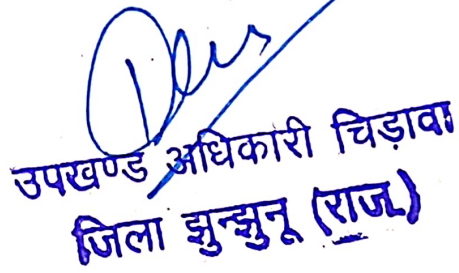 उपखण्ड अधिकारी चिड़ावा
जिला झुन्झुनू (राज.)